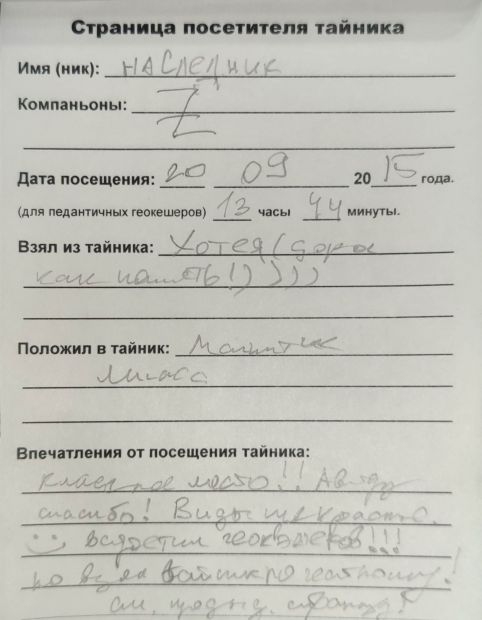 Страница посетителя тайника
Имя (ник): НАСЛЕДНИК
Компаньоны: Z
Дата посещения: 20 09 2015 года.
(для педантичных геокешеров) 13 часы 44 минуты.
Взял из тайника: Хотея (
как память!))))
Положил в тайник: Магнитик
Миасс
Впечатления от посещения тайника:
Классное место!! Автору
спасибо! Виды прекрасные.
встретил геокэшеров!!!
но взял
см. страницу!